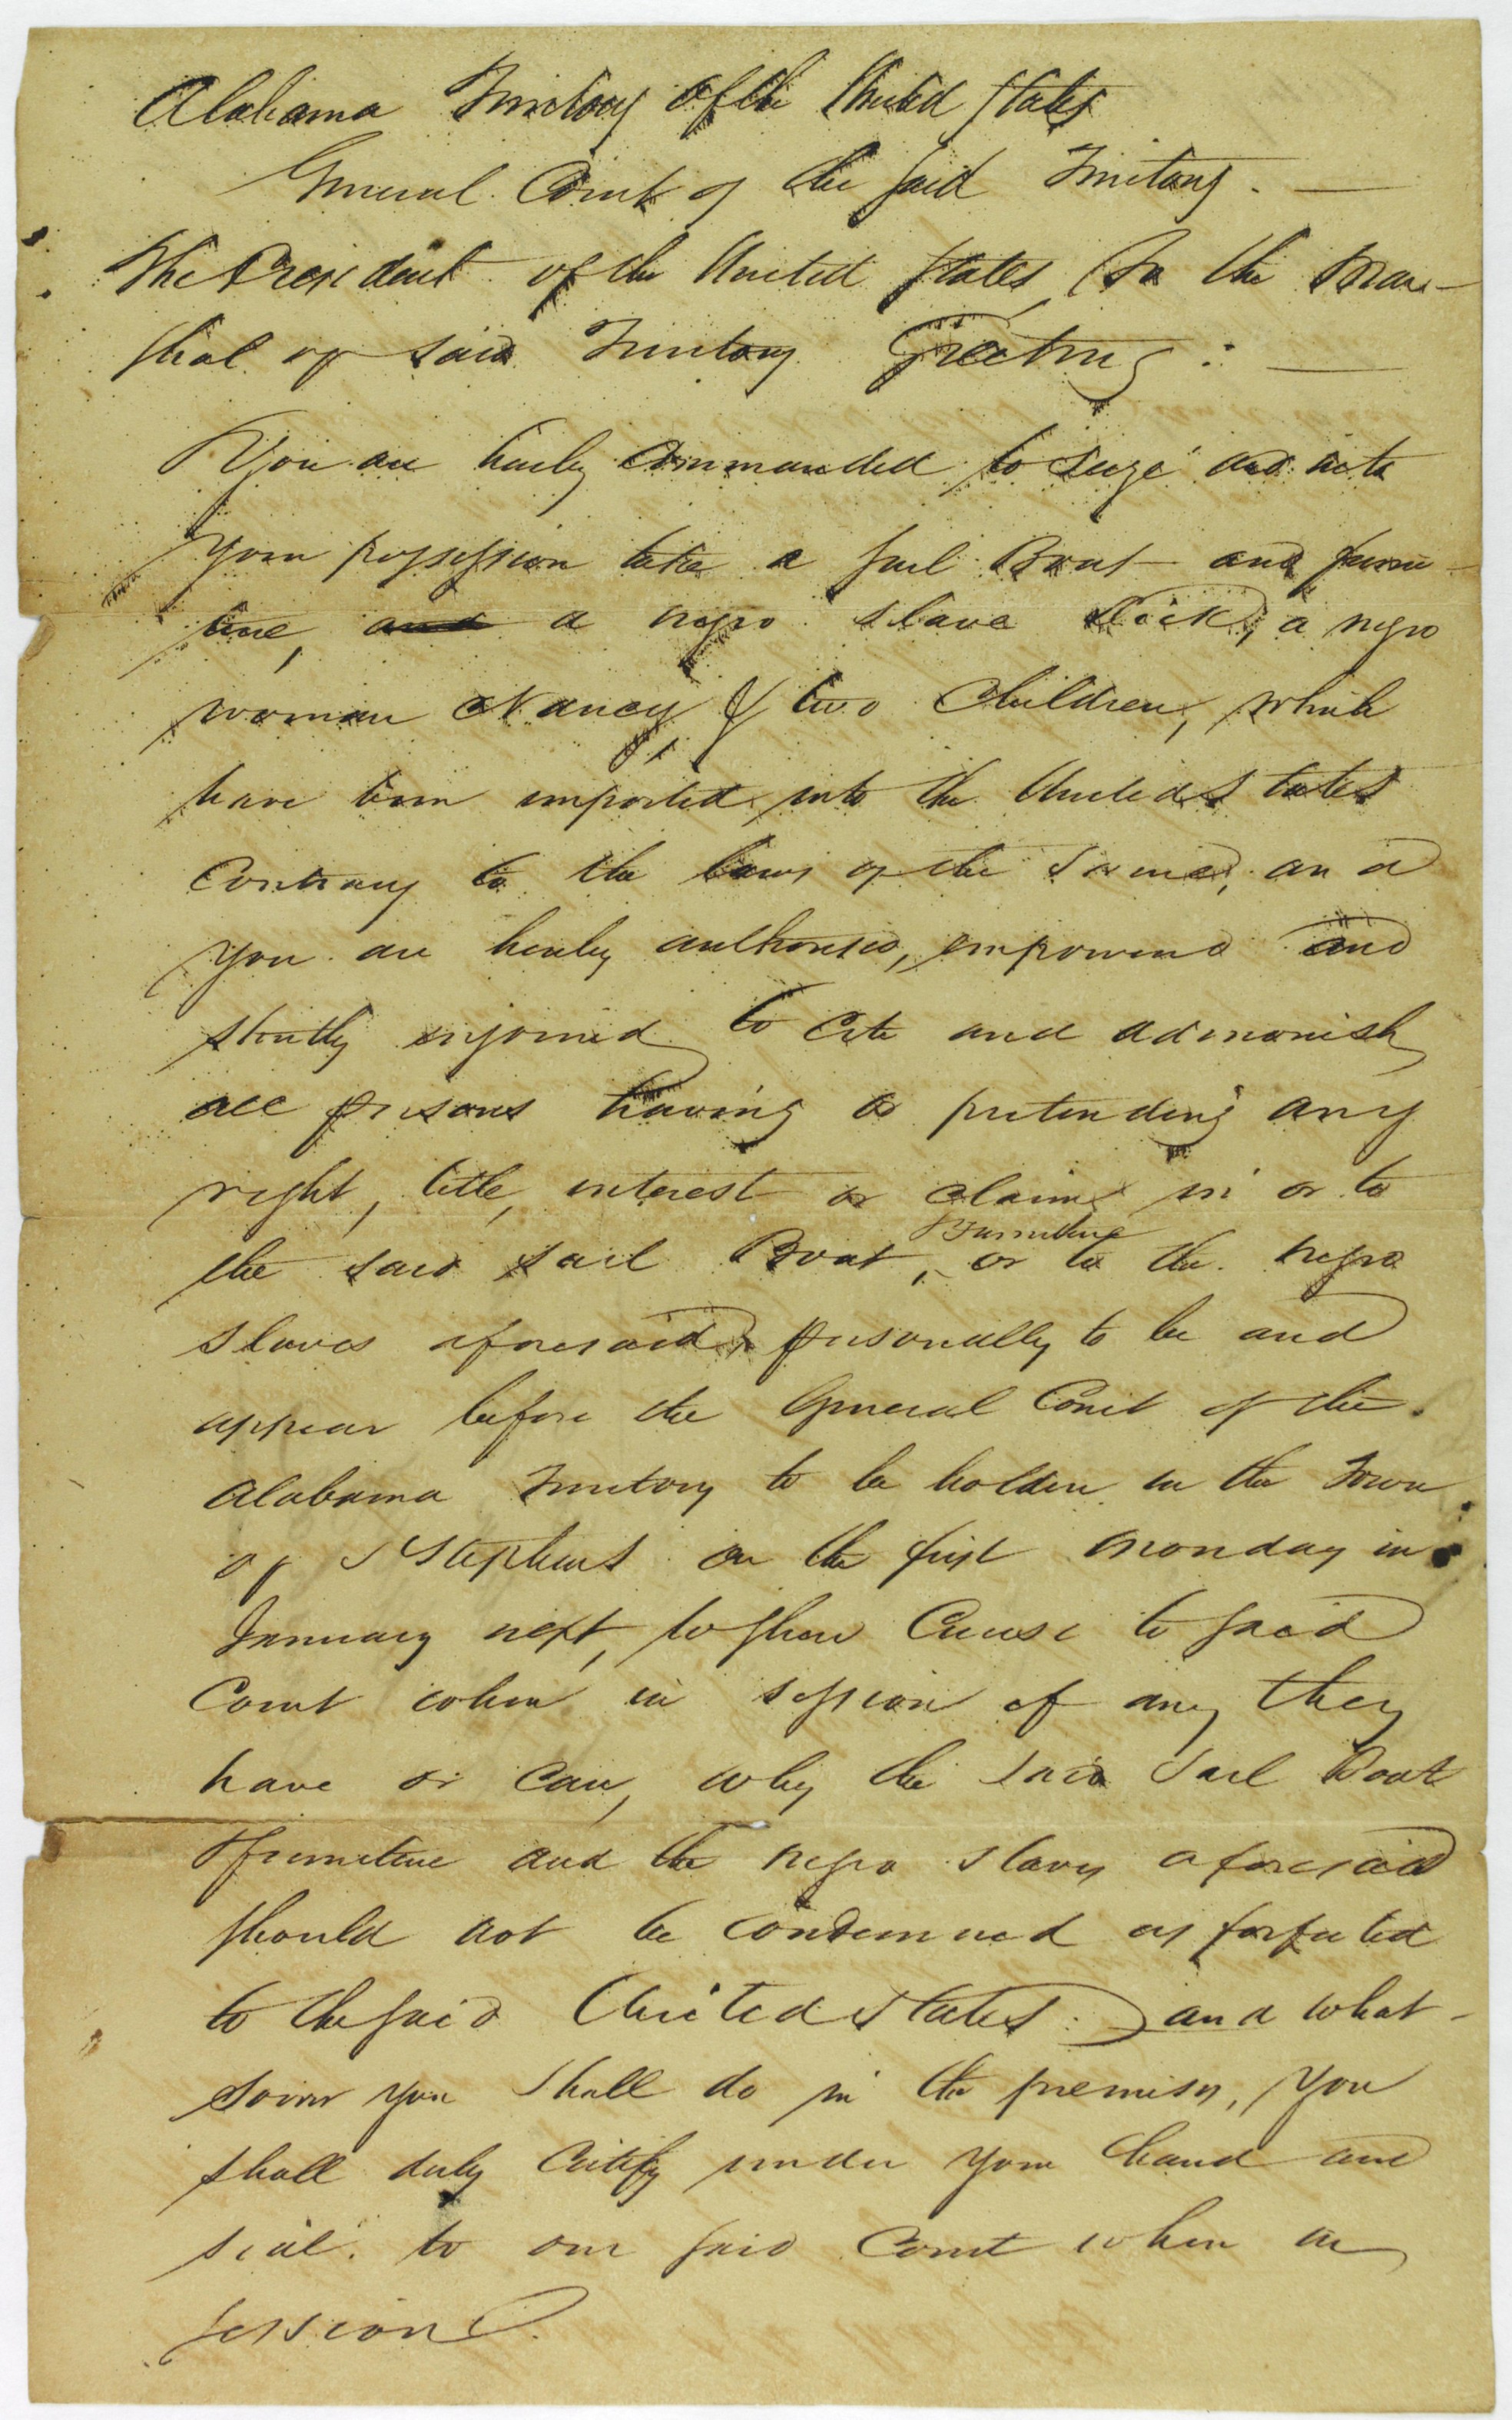 Alabama Territory of the United States
General Court of the said Territory. —
The President of the United States, To the Mar-
shal of said Territory Greeting: —
You are hereby Commanded to seize and into
your possession take a sail Boat and furni-
ture, and a negro slave Dick, a negro
woman Nancy, & two Children, which
have been imported into the United States
Contrary to the laws of the same, and
you are hereby authorised, empowered and
strictly enjoined to Cite and admonish
all persons having or pretending any
right, title, interest or claim in or to
the said sail Boat, & Furniture or to the negro
slaves aforesaid, personally to be and
appear before the General Court of the
Alabama Territory to be holden in the Town
of St Stephens on the first Monday in
January next, to shew Cause to said
Court when in session if any they
have or can, why the said Sail Boat
& furniture and the negro slaves aforesaid
should not be condemned as forfeited
to the said United States: and what-
soever you shall do in the premises, you
shall duly Certify under your hand and
seal to our said Court when in
session.